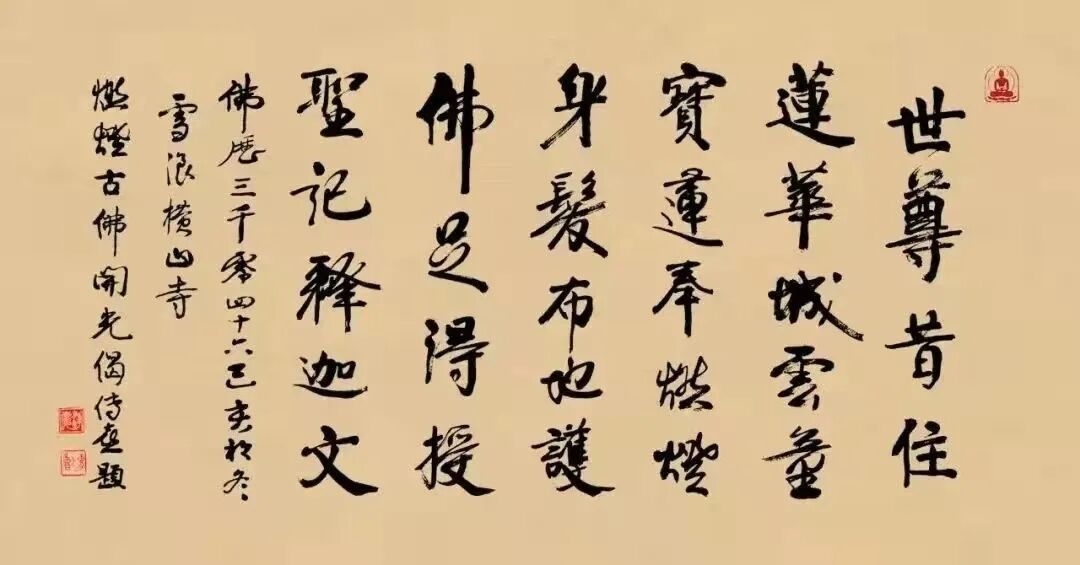 世尊昔住
蓮華城雲童
寶蓮奉燃燈
身髮布地護
佛足得授
聖記釋迦文
佛歷三千零四十六己亥初冬
雪浪橫山寺
燃燈古佛開光偈传喜題